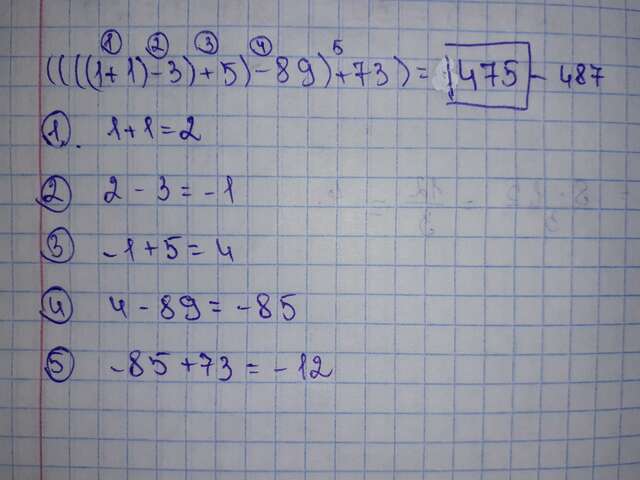 ① ② ③ ④ 5
(((((1+1)-3)+5)-89)+73) = 475 - 487
①. 1+1=2
② 2-3=-1
③ -1+5=4
④ 4-89=-85
⑤ -85+73=-12